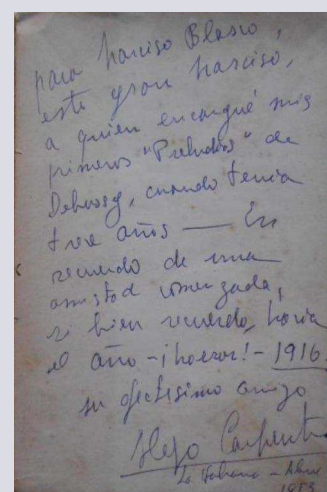 para Narciso Blasco,
este gran Narciso,
a quien encargué mis
primeros "Preludios" de
Debussy, cuando tenía
trece años — En
recuerdo de una
amistad comenzada,
si bien recuerdo, hacia
el año - ¡horror! - 1916
su afectísimo amigo
Alejo Carpentier
La Habana -